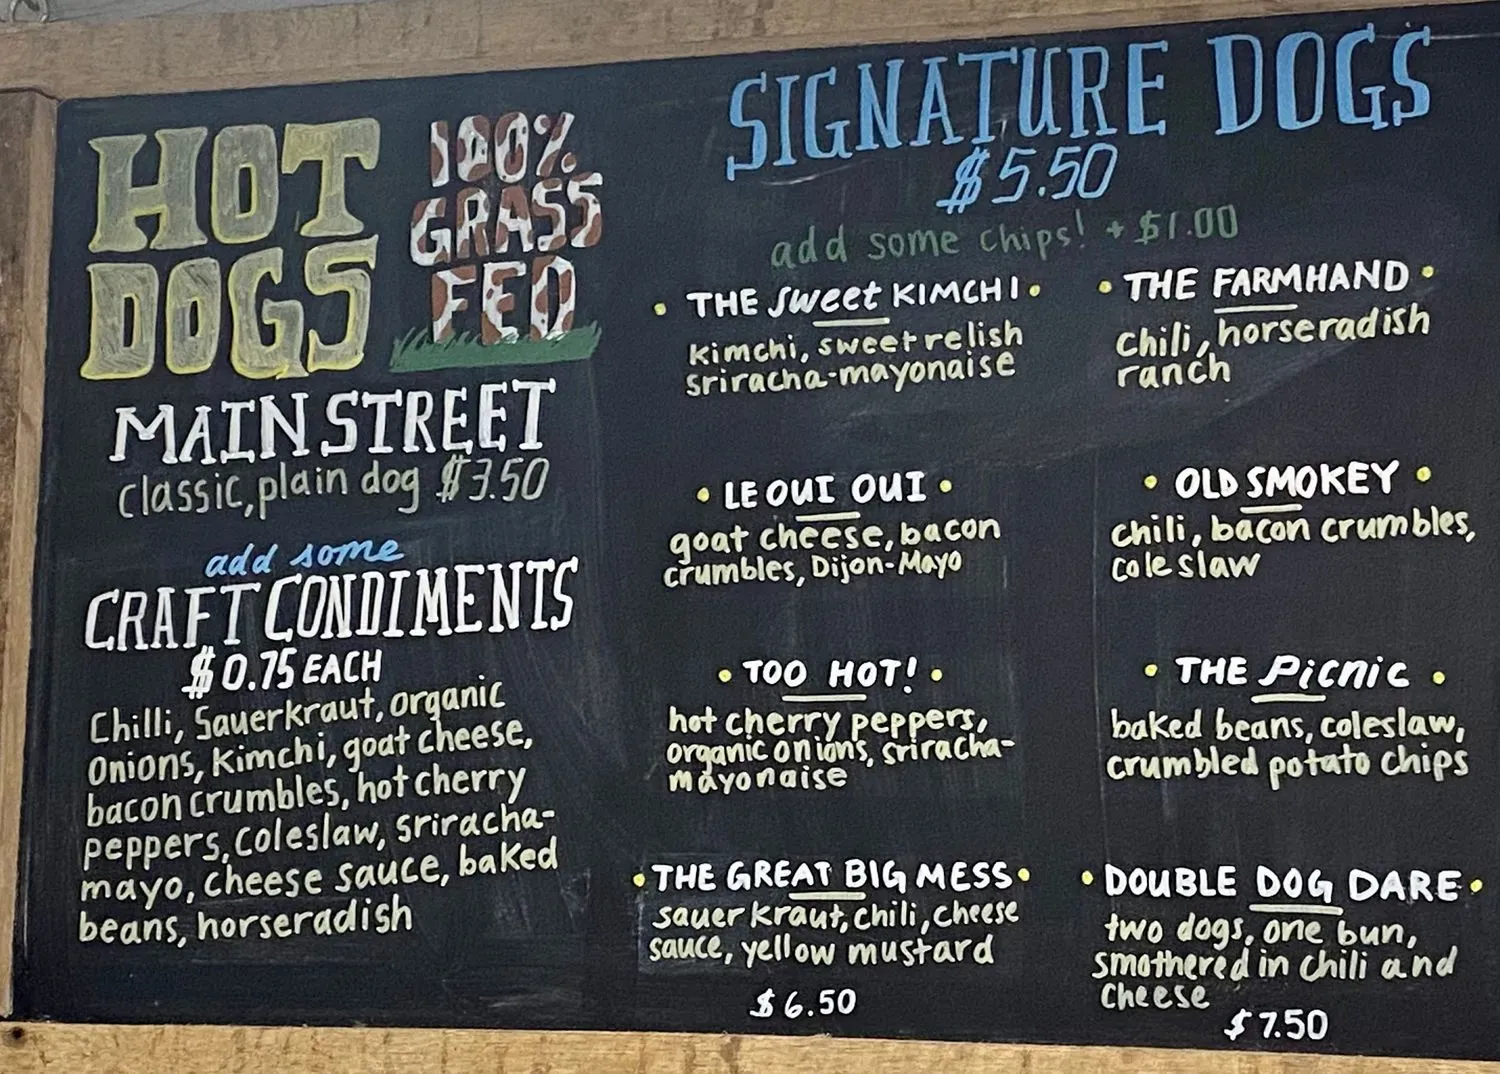 HOT
DOGS
100%
GRASS
FED
MAIN STREET
classic, plain dog $3.50
add some
CRAFT CONDIMENTS
$0.75 EACH
Chilli, Sauerkraut, organic
onions, kimchi, goat cheese,
bacon crumbles, hot cherry
peppers, coleslaw, sriracha-
mayo, cheese sauce, baked
beans, horseradish
SIGNATURE DOGS
$5.50
add some chips! + $1.00
• THE sweet KIMCHI •
kimchi, sweet relish
sriracha-mayonaise
• THE FARMHAND •
chili, horseradish
ranch
• LE OUI OUI •
goat cheese, bacon
crumbles, Dijon-Mayo
• OLD SMOKEY •
chili, bacon crumbles,
cole slaw
• TOO HOT! •
hot cherry peppers,
organic onions, sriracha-
mayonaise
• THE Picnic •
baked beans, coleslaw,
crumbled potato chips
• THE GREAT BIG MESS •
sauerkraut, chili, cheese
sauce, yellow mustard
$6.50
• DOUBLE DOG DARE •
two dogs, one bun,
smothered in chili and
cheese
$7.50